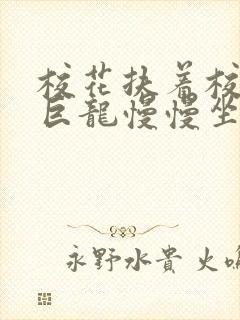 校花扶着校
巨龍慢慢坐
永野水貴 火鳴